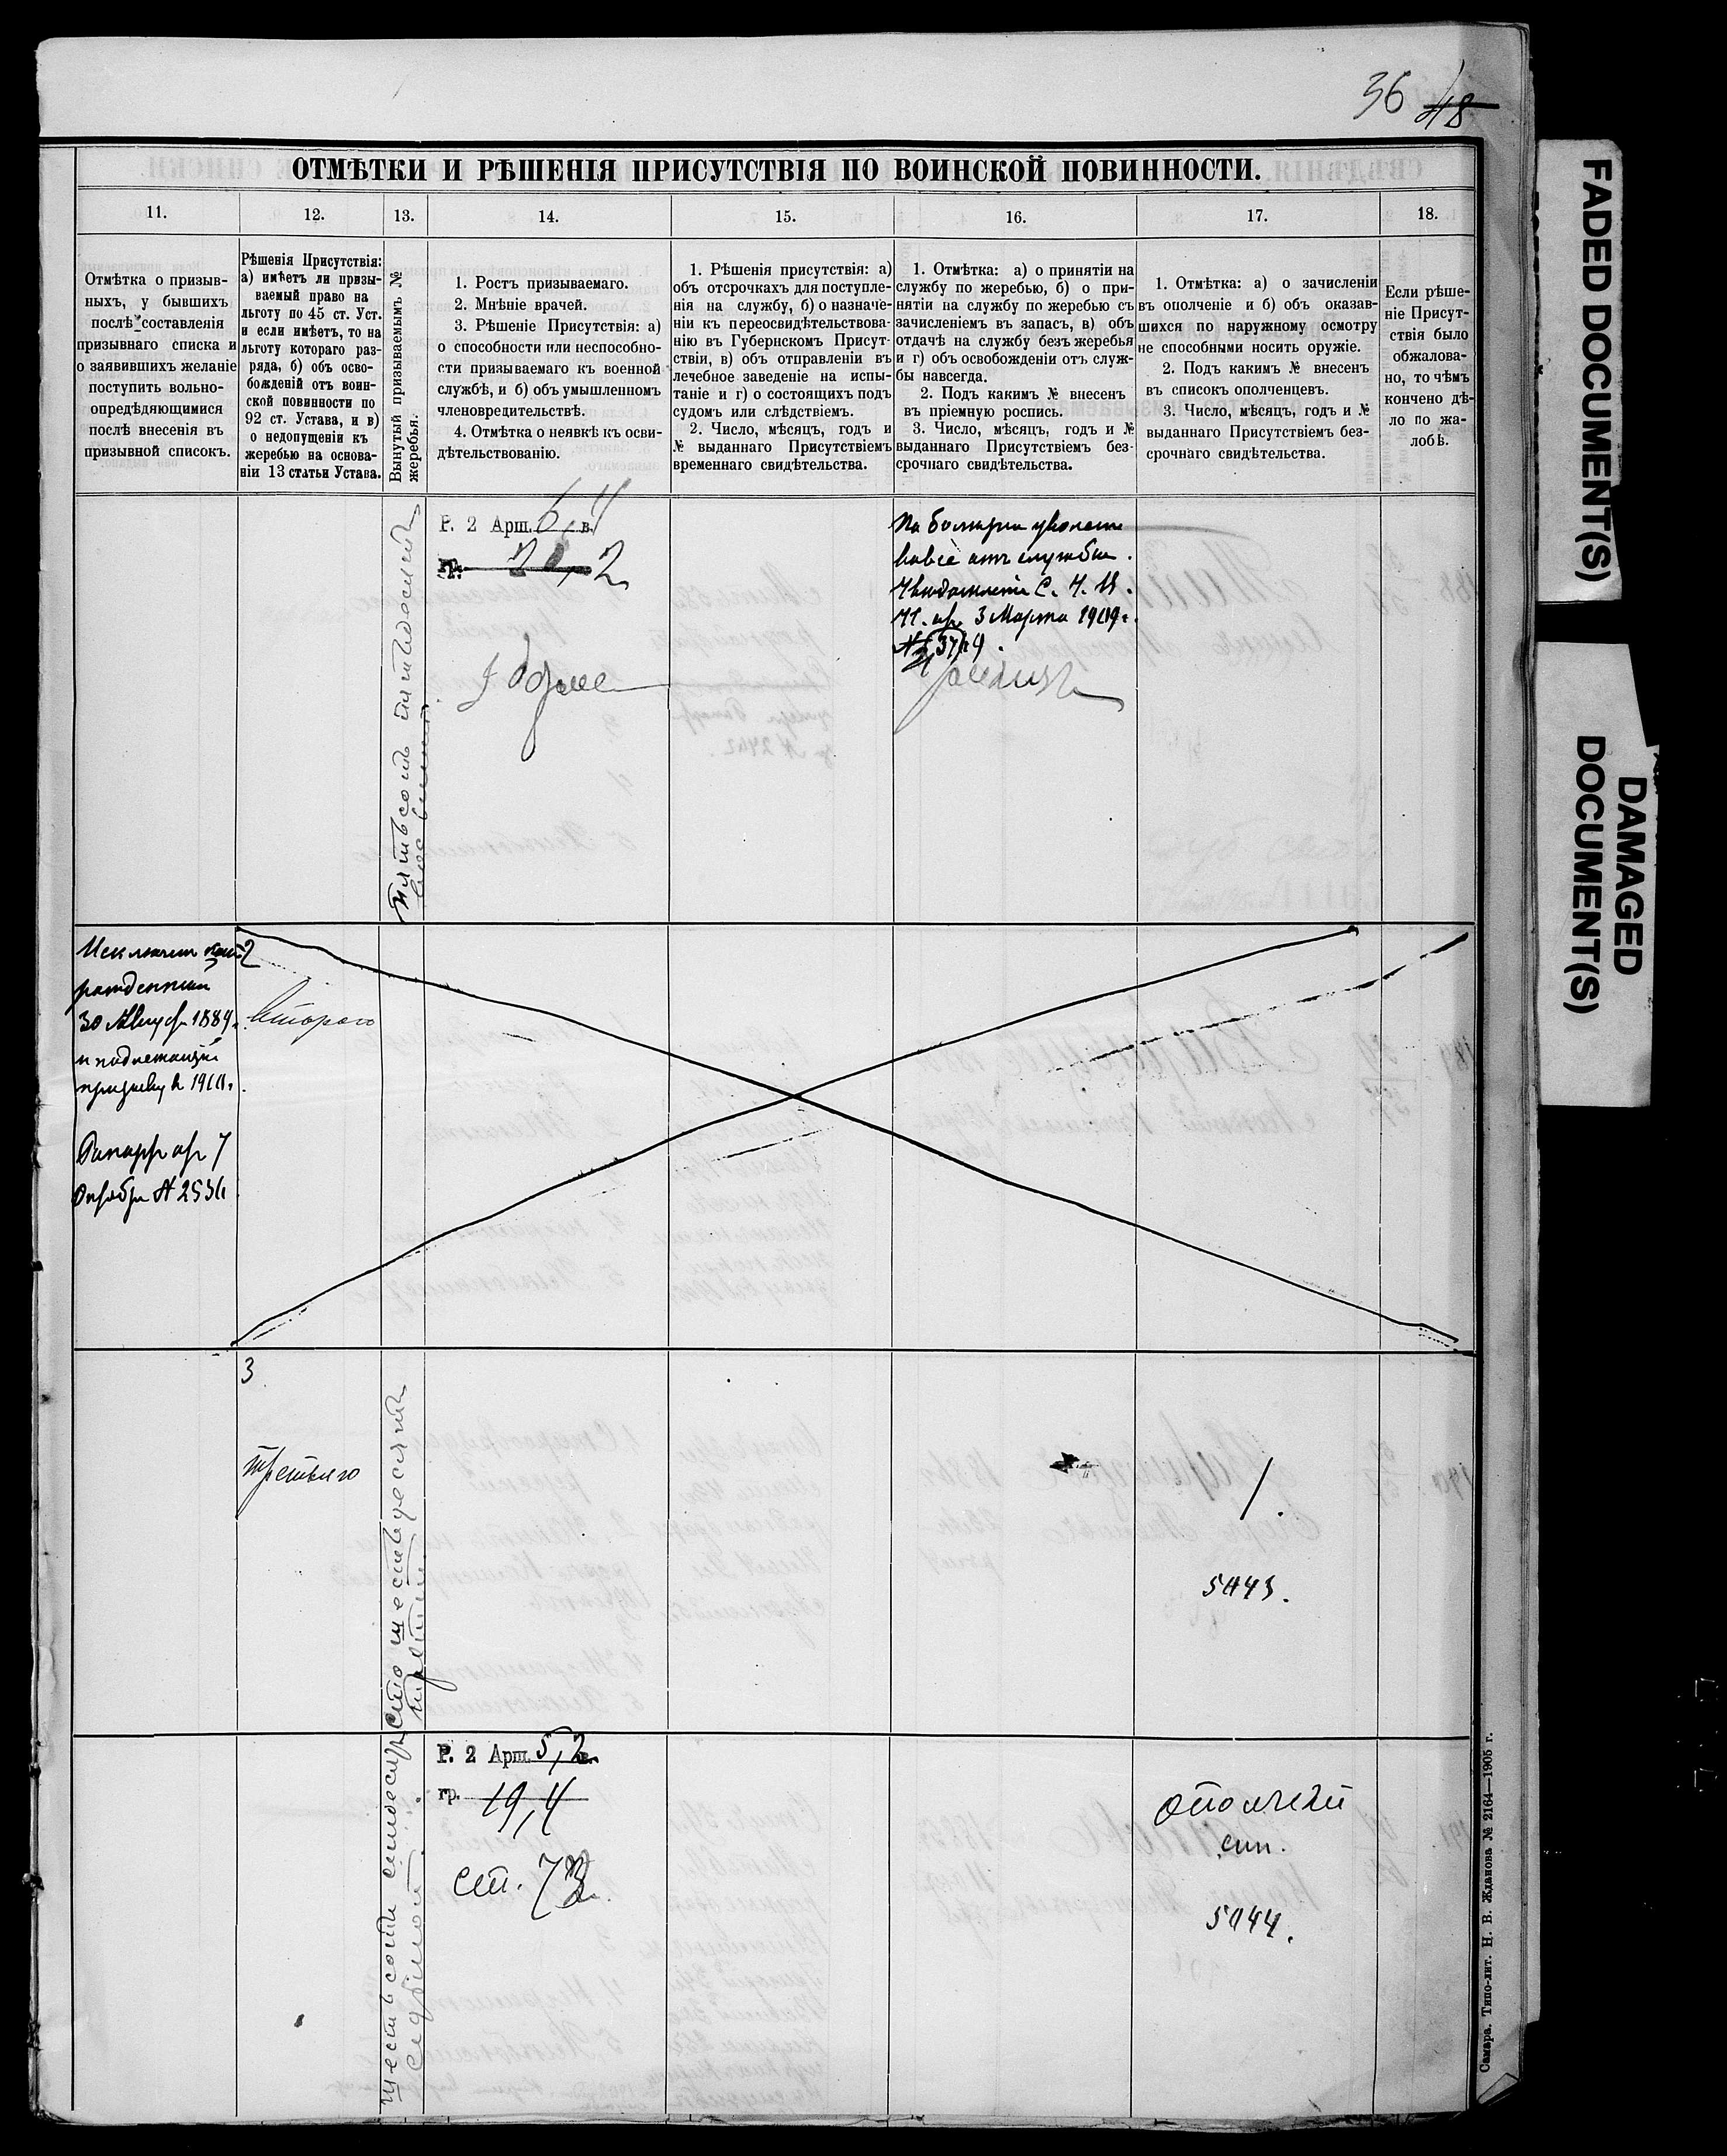 36 48
ОТМѢТКИ И РѢШЕНІЯ ПРИСУТСТВІЯ ПО ВОИНСКОЙ ПОВИННОСТИ.
11.
12.
13.
14.
15.
16.
17.
18.
Отмѣтка о призыв-
ныхъ, у бывшихъ
послѣ составленія
призывнаго списка и
о заявившихъ желаніе
поступить вольно-
опредѣляющимися
послѣ внесенія въ
призывной списокъ.
Рѣшенія Присутствія:
а) имѣетъ ли призы-
ваемый право на
льготу по 45 ст. Уст.
и если имѣетъ, то на
льготу котораго раз-
ряда, б) объ осво-
божденій отъ воин-
ской повинности по
92 ст. Устава, и в)
о недопущеніи къ
жеребью на основа-
ніи 13 статьи Устава.
Вынутый призываемымъ №
жеребья.
1. Ростъ призываемаго.
2. Мнѣніе врачей.
3. Рѣшеніе Присутствія: а)
о способности или неспособно-
сти призываемаго къ военной
службѣ, и б) объ умышленномъ
членовредительствѣ.
4. Отмѣтка о неявкѣ къ осви-
дѣтельствованію.
1. Рѣшенія присутствія: а)
объ отсрочкахъ для поступле-
нія на службу, б) о назначе-
ніи къ переосвидѣтельствова-
нію въ Губернскомъ Присут-
ствіи, в) объ отправленіи въ
лечебное заведеніе на испы-
таніе и г) о состоящихъ подъ
судомъ или слѣдствіемъ.
2. Число, мѣсяцъ, годъ и
№ выданнаго Присутствіемъ
временнаго свидѣтельства.
1. Отмѣтка: а) о принятіи на
службу по жеребью, б) о при-
нятіи на службу по жеребью съ
зачисленіемъ въ запасъ, в) объ
отдачѣ на службу безъ жеребья
и г) объ освобожденіи отъ служ-
бы навсегда.
2. Подъ какимъ № внесенъ
въ пріемную роспись.
3. Число, мѣсяцъ, годъ и №
выданнаго Присутствіемъ без-
срочнаго свидѣтельства.
1. Отмѣтка: а) о зачисленіи
въ ополченіе и б) объ оказав-
шихся по наружному осмотру
не способными носить оружіе.
2. Подъ какимъ № внесенъ
въ списокъ ополченцевъ.
3. Число, мѣсяцъ, годъ и №
выданнаго Присутствіемъ без-
срочнаго свидѣтельства.
Если рѣше-
ніе Присут-
ствія было
обжалова-
но, то чѣмъ
кончено дѣ-
ло по жа-
лобѣ.
Пятьсотъ пятьдесятъ
Р. 2 Арш. 6,4 в.
гр. 21,2
Годенъ
По болѣзни уволенъ
вовсе отъ службы.
Увѣдомленіе С. У. И.
Н. отъ 3 Марта 1909 г.
№ 3719.
Исключенъ какъ
рожденный
30 Август 1889 г.
и подлежащій
призыву въ 1910 г.
Рапортъ отъ 7
Октября № 2534
2
Второго
3
третьяго
Сто шестьдесятъ
третій
/.
5043.
Шестьсотъ семьдесятъ
седьмой
Р. 2 Арш. 5,2 в.
гр. 19,4
ст.
ополчен
сп.
5044.
Самара. Типо-лит. Н. В. Жданова № 2164—1905 г.
FADED DOCUMENT(S)
DAMAGED
DOCUMENT(S)